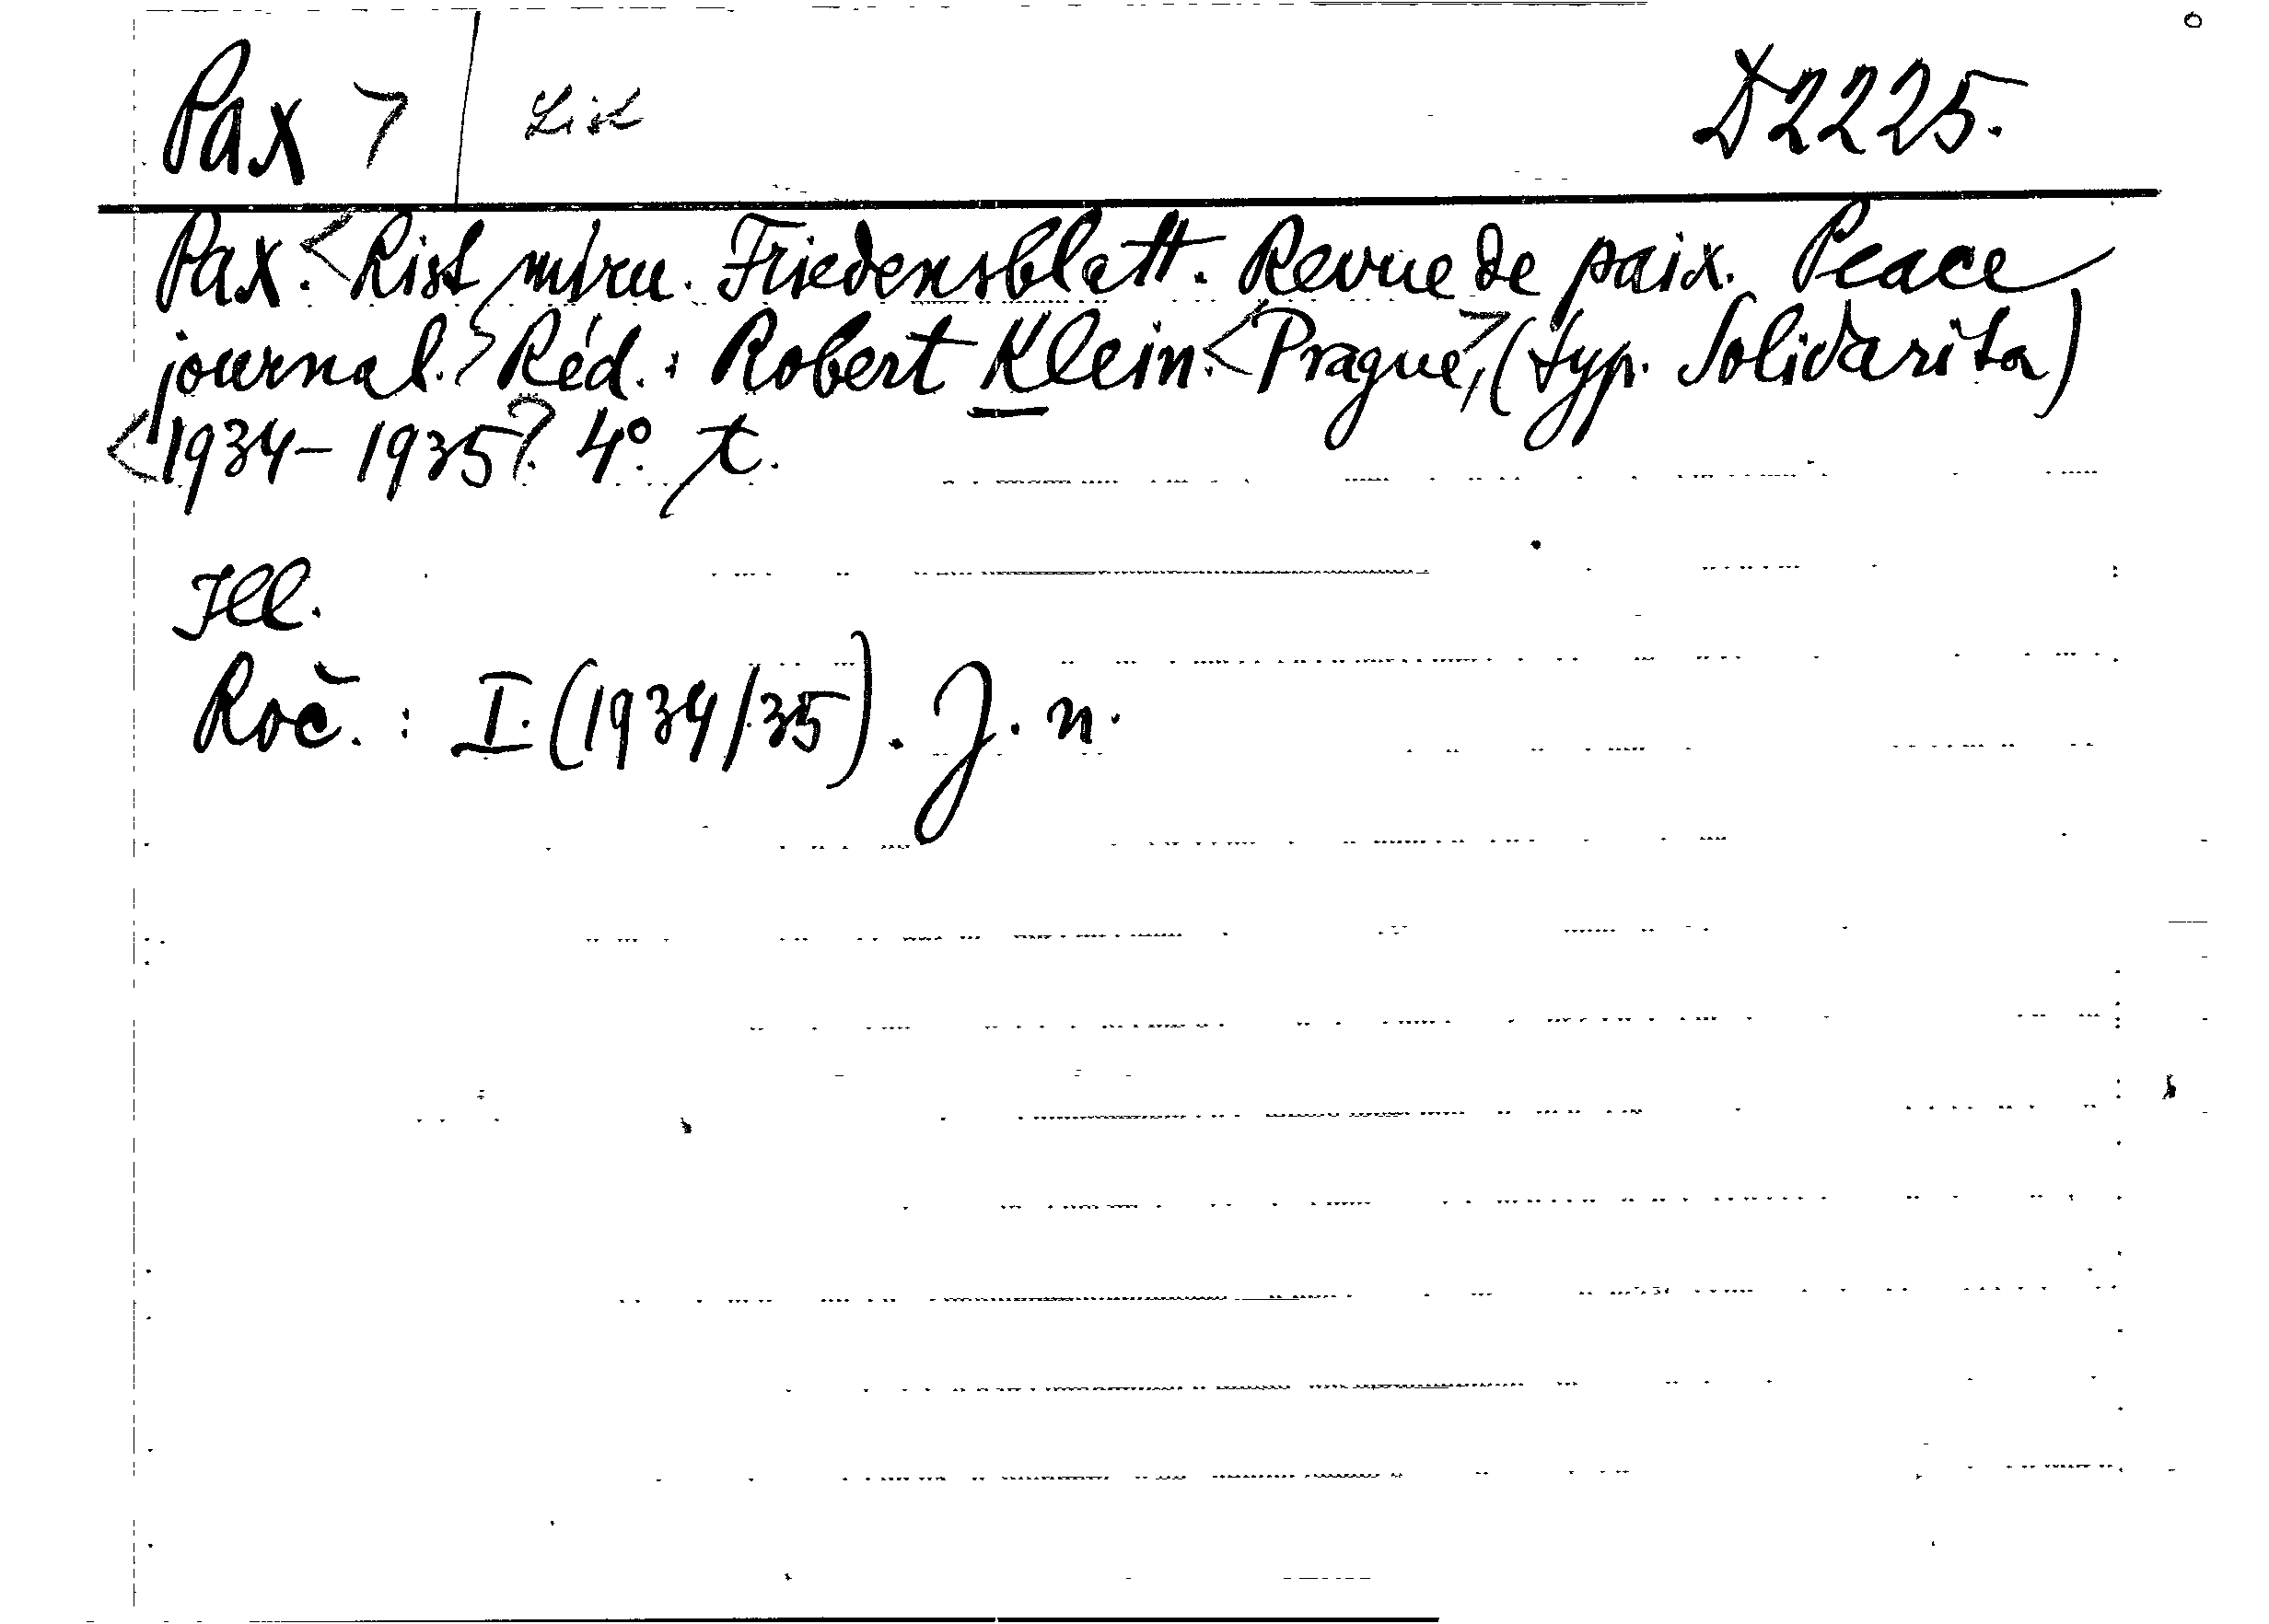 Pax > List D2225.
Pax. <List míru. Friedensblatt. Revue de paix. Peace
journal.> Réd.: Robert Klein. <Prague>, (typ. Solidarita)
<1934-1935>. 4° t.
Ill.
Roč.: I. (1934/35). J. n.